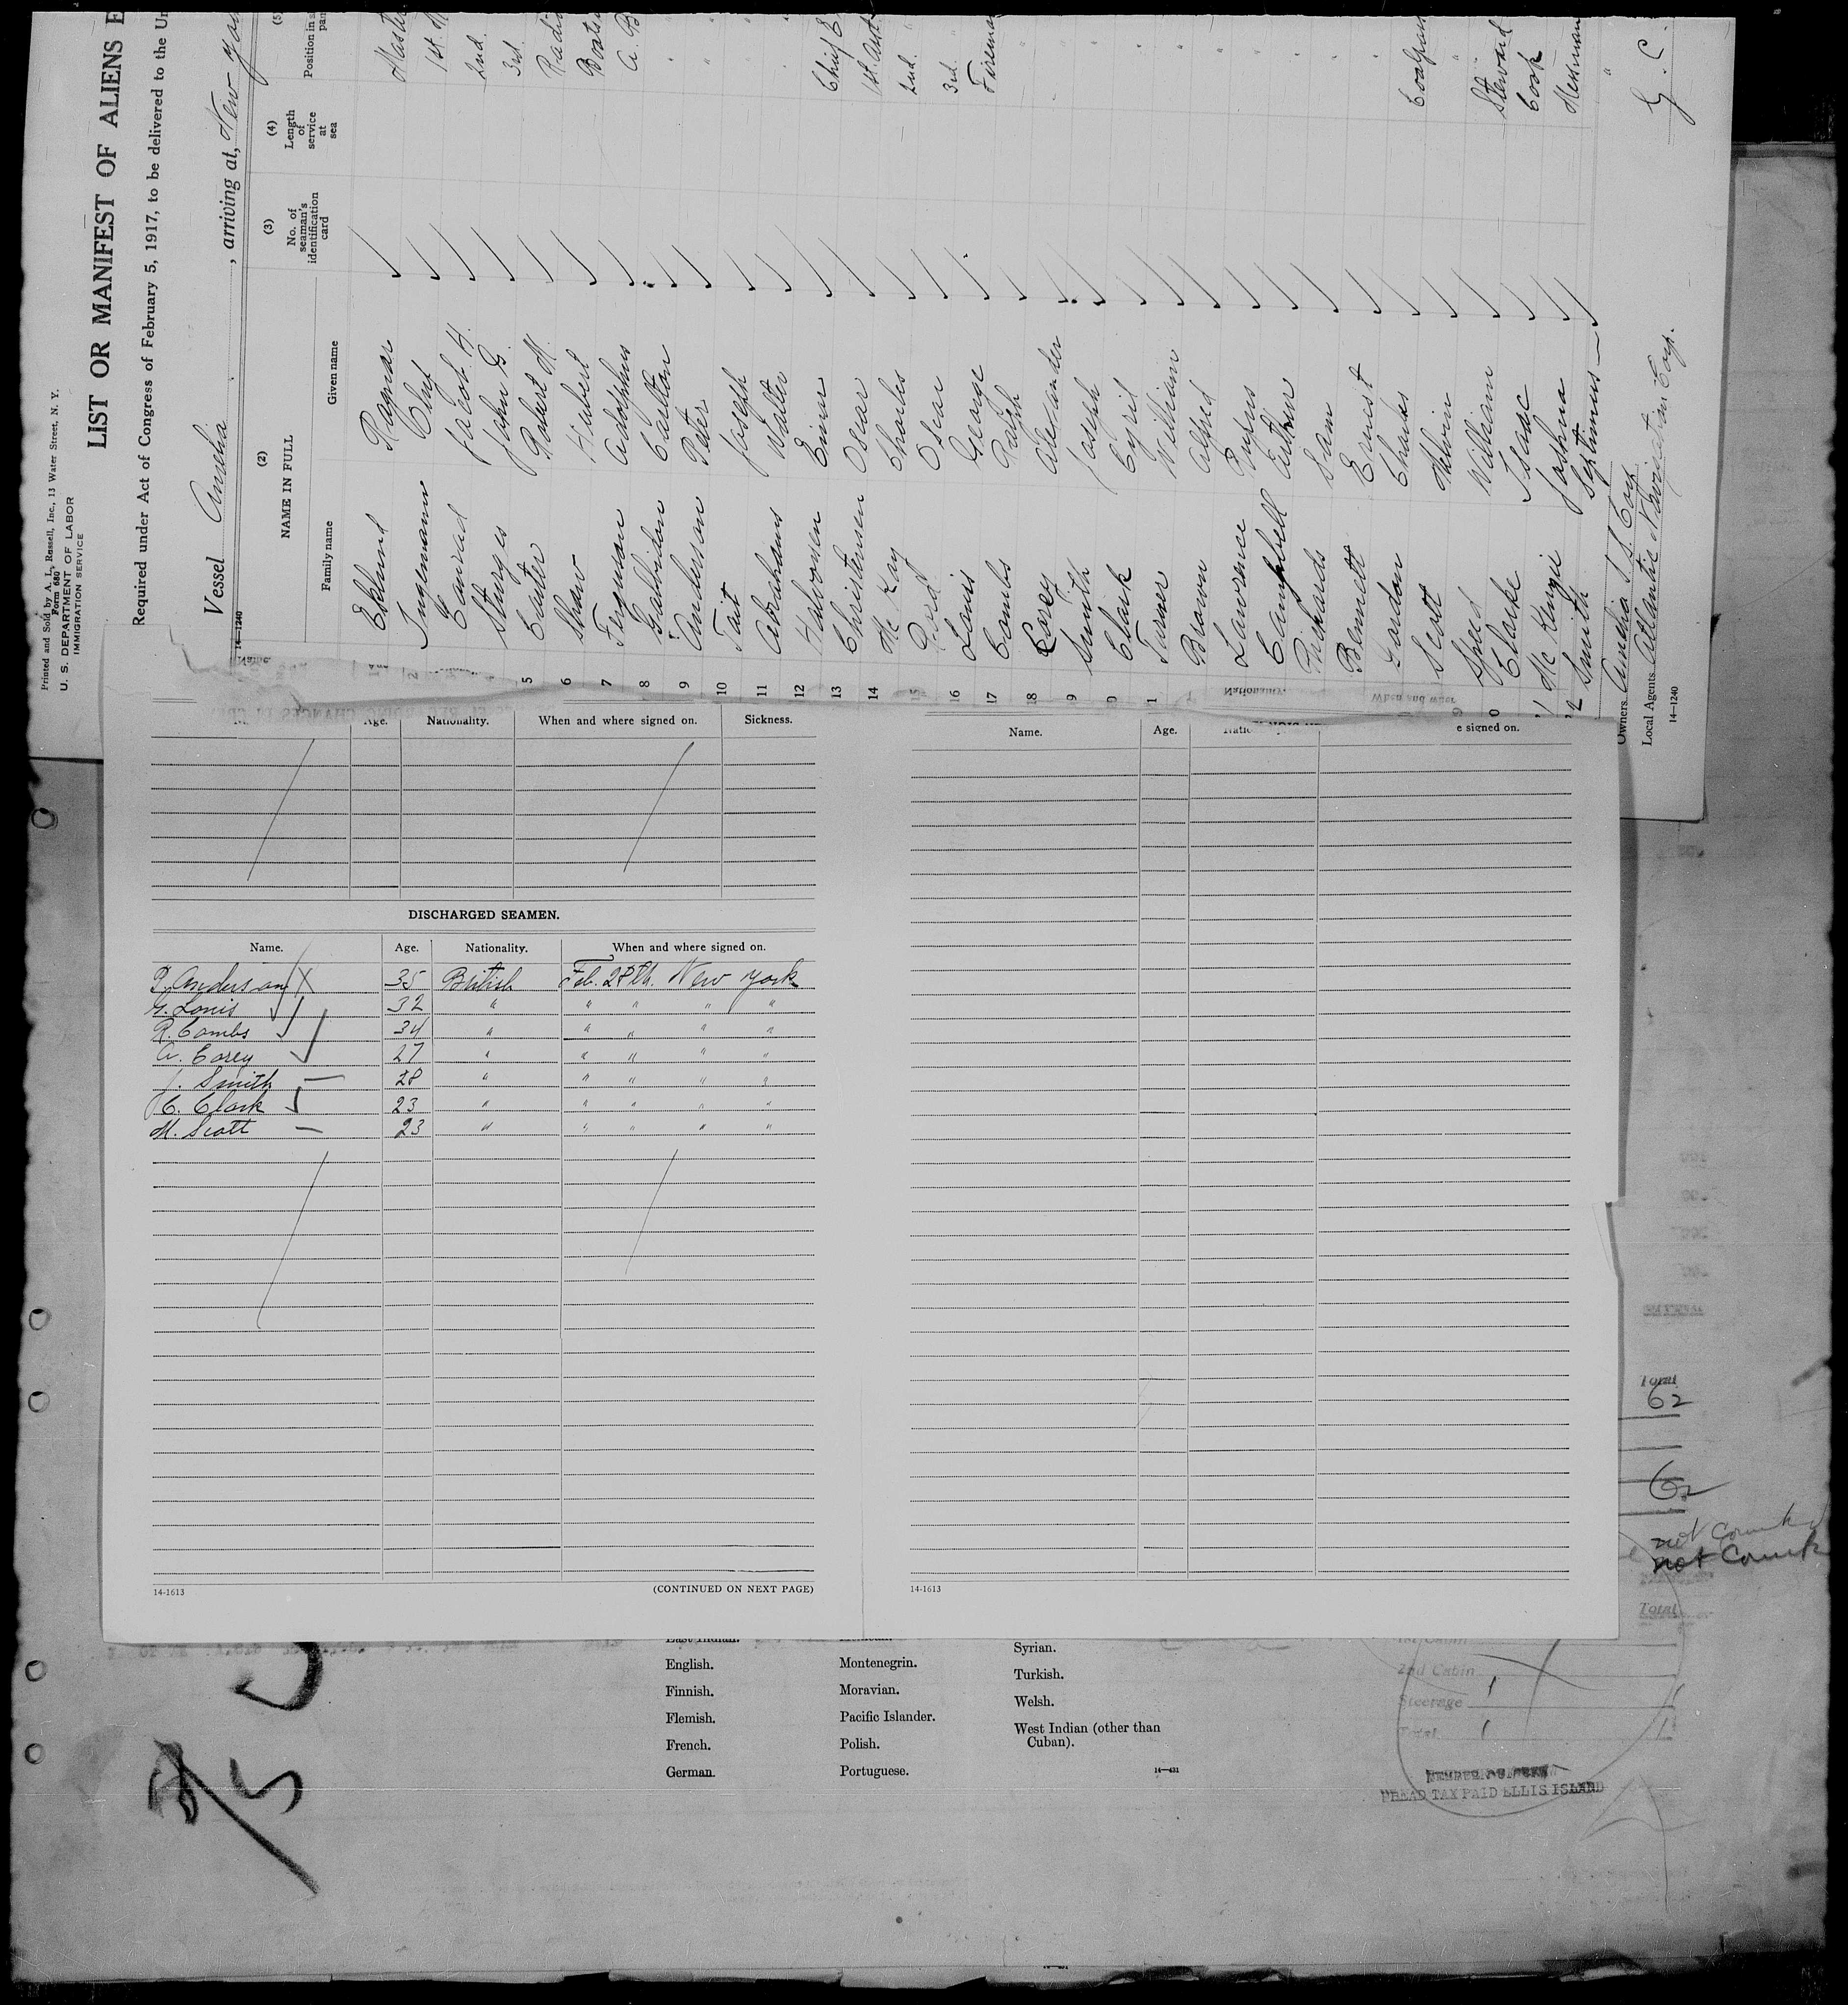 Printed and Sold by A. L. Russell, Inc., 13 Water Street, N. Y.
Form 680
U. S. DEPARTMENT OF LABOR
IMMIGRATION SERVICE
LIST OR MANIFEST OF ALIENS E
Required under Act of Congress of February 5, 1917, to be delivered to the Un
Vessel Amelia , arriving at, New York
14—1240
(2) (3) (4) (5)
NAME IN FULL No. of seaman's identification card Length of service at sea Position in s
Family name Given name
Eklund Ragnar Maste
Ingemann Olaf 1st. M
Conrad Jacob H. 2nd.
Sturges John G. 3rd.
5 Carter Robert M. Radi
6 Shaw Hubert Boats
7 Ferguson Adolphus A. B
8 Galbriden Carlton "
9 Anderson Peter "
10 Tait Joseph
11 Abrahams Walter
12 Halvorsen Einer Chief E
13 Christensen Oscar 1st. Asst
14 Mc Kay Charles 2nd.
Oscar 3rd.
16 Louis George Firema
17 Combs Ralph
18 Corey Alexander
9 Smith Joseph
0 Clark Cyril
1 Turner William
Brown Alfred
Lawrence Rupens
Campbell Esthur
Richards Sam
Bennett Ernest
Gordon Charles Coalpas
Scott Melvin
Speed William Steward
0 Clarke Isaac Cook
1 Mc Kenzie Joshua Messman
2 Smith Septimus "
Owners Amelia S. S. Corp.
Local Agents Atlantic Navigation Corp.
G. C.
14—1240
Age. Nationality. When and where signed on. Sickness.
DISCHARGED SEAMEN.
Name. Age. Nationality. When and where signed on.
P. Anderson X 35 British Feb. 28th. New York
G. Louis 32 " " " " "
R. Combs 34 " " " " "
A. Corey 27 " " " " "
J. Smith 28 " " " " "
C. Clark 23 " " " " "
M. Scott 23 " " " " "
14-1613 (CONTINUED ON NEXT PAGE)
Name. Age. e signed on.
14-1613
Total
62
62
not Count
not Count
Total
East Indian.
English.
Finnish.
Flemish.
French.
German.
Montenegrin.
Moravian.
Pacific Islander.
Polish.
Portuguese.
Syrian.
Turkish.
Welsh.
West Indian (other than
Cuban).
14—431
2nd Cabin
Steerage 1
Total 1 1
HEAD TAX PAID ELLIS ISLAND